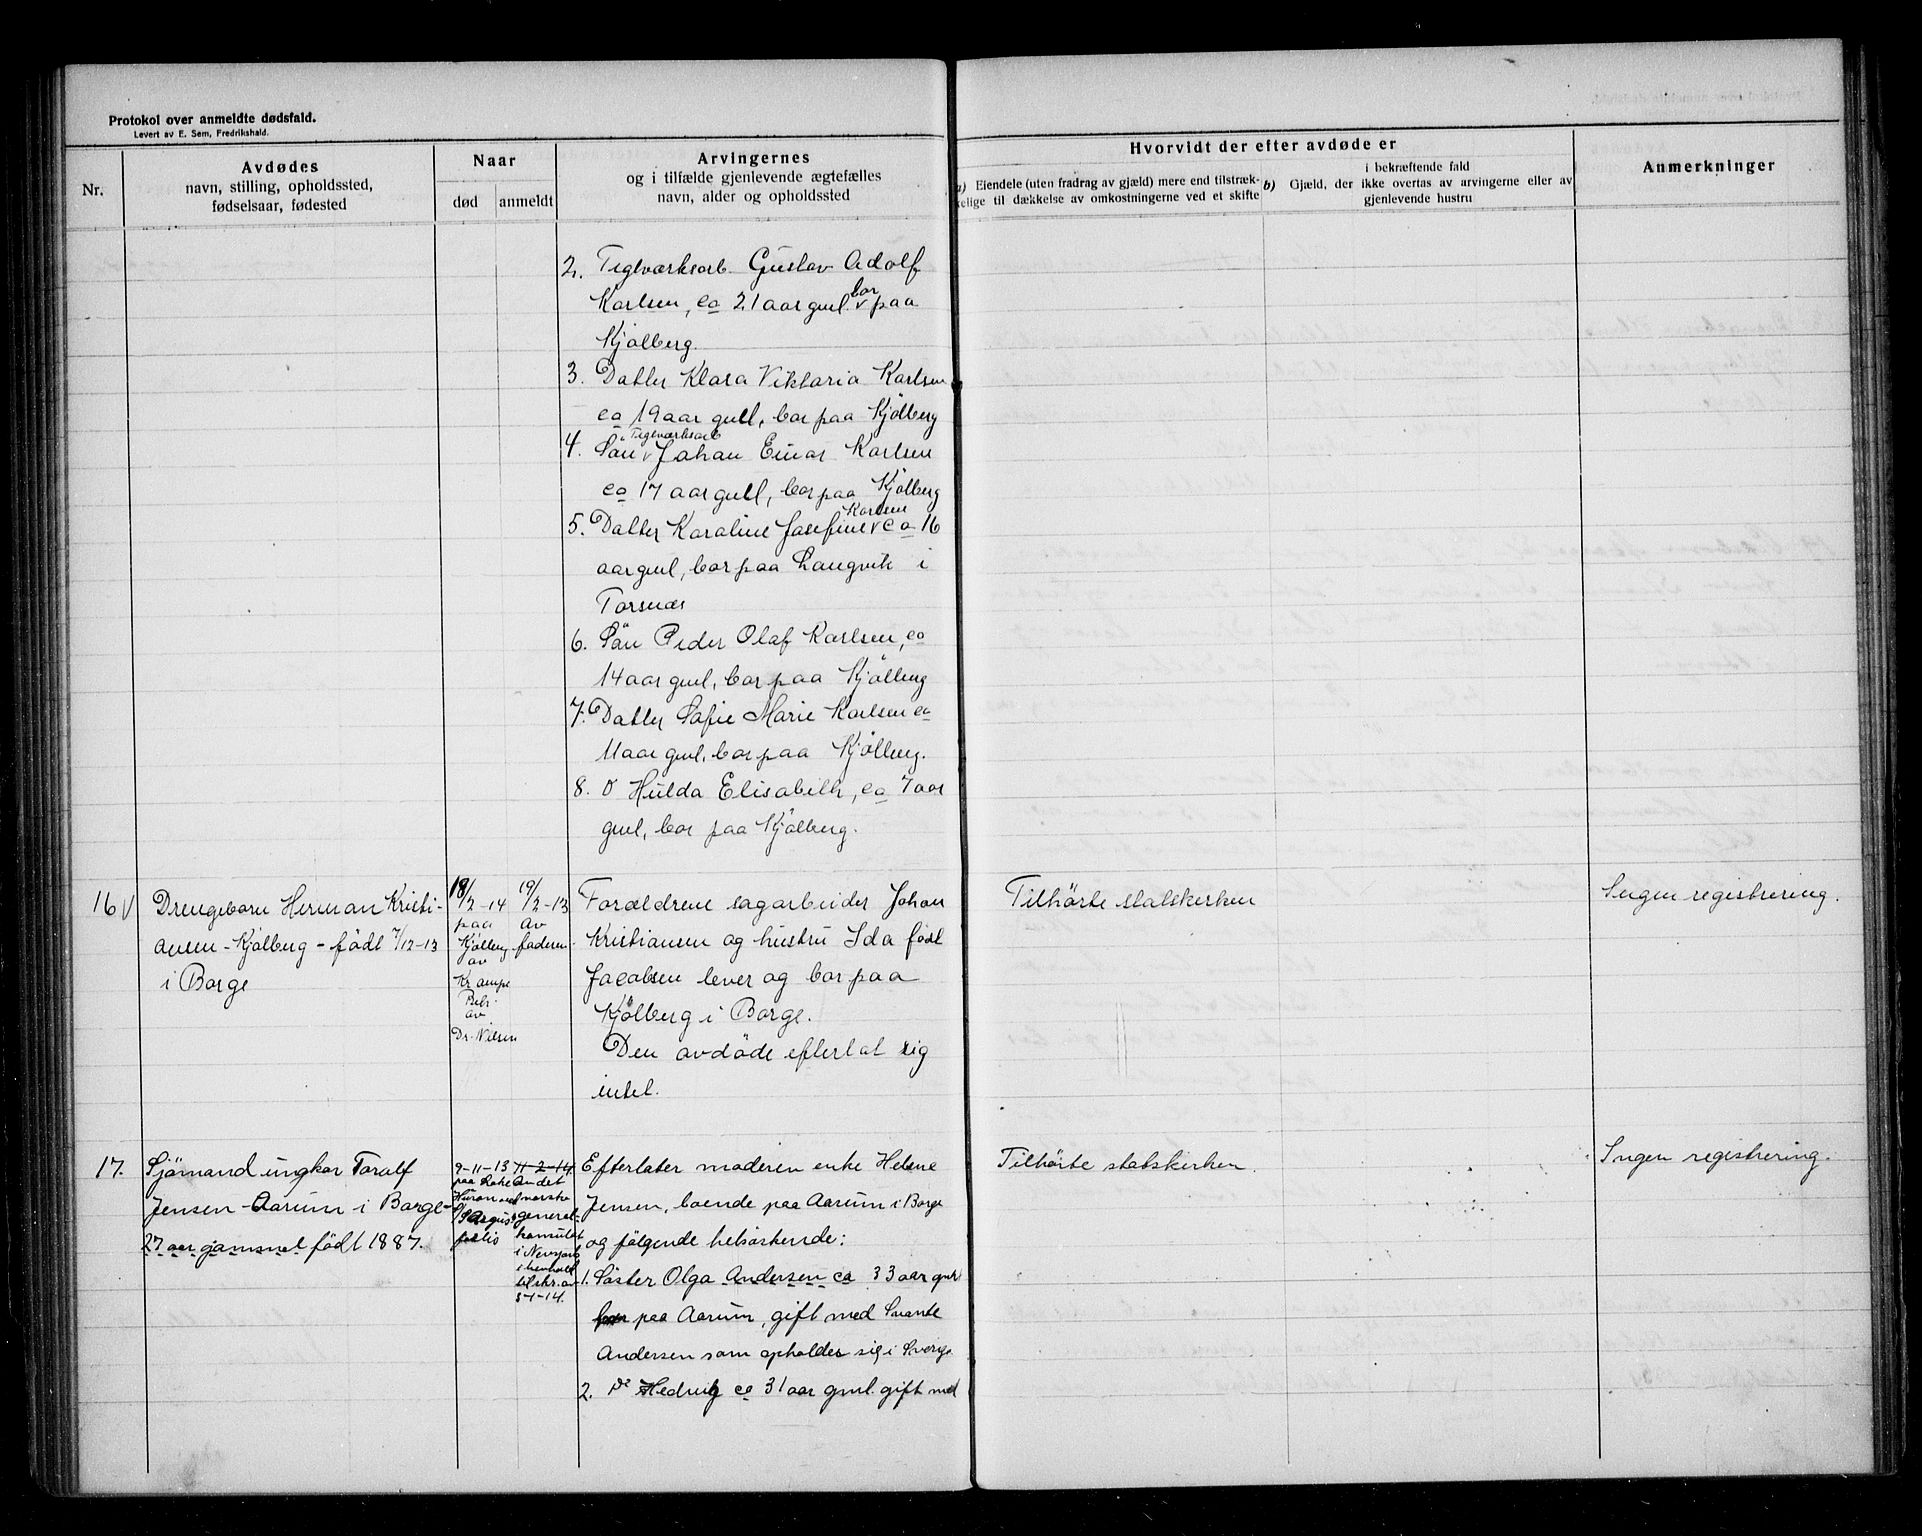 Protokol over anmeldte dødsfald.
Levert av E. Sem, Fredrikshald.
Nr.
Avdødes
navn, stilling, opholdssted,
fødselsaar, fødested
Naar
død
anmeldt
Arvingernes
og i tilfælde gjenlevende ægtefælles
navn, alder og opholdssted
Hvorvidt der efter avdøde er
a) Eiendele (uten fradrag av gjæld) mere end tilstræk-
kelige til dækkelse av omkostningerne ved et skifte
b)
i bekræftende fald
Gjæld, der ikke overtas av arvingerne eller av
gjenlevende hustru
Anmerkninger
2. Teglværksarb. Gustav Adolf
Karlsen, ca 21 aar gml. bor paa
Kjölberg.
3. Datter Klara Viktoria Karlsen
ca 19 aar gml, bor paa Kjölberg
4. Sön Teglværksarb Johan Einar Karlsen
ca 17 aar gml, bor paa Kjölberg
5. Datter Karoline Josefine Karlsen ca 16
aar gml, bor paa Langvik i
Torsnæs
6. Sön Peder Olaf Karlsen, ca
14 aar gml, bor paa Kjölberg
7. Datter Sofie Marie Karlsen ca
11 aar gml, bor paa Kjölberg.
8. D Hulda Elisabeth, ca 7 aar
gml, bor paa Kjölberg.
16 V
Drengebarn Herman Kristi-
ansen - Kjölberg - födt 7/12-13
i Borge
18/2-14
paa
Kjölberg
av
Krampe
Beh.
av
Dr. Nilsen
19/2-13
av
faderen.
Forældrene sagarbeider Johan
Kristiansen og hustru Ida födt
Jacobsen lever og bor paa
Kjölberg i Borge.
Den avdöde efterlot sig
intet.
Tilhörte statskirken
Ingen registrering.
17.
Sjömand ungkar Toralf
Jensen - Aarum i Borge -
27 aar gammel födt 1887.
9-11-13
paa Lake
Huron med
S/S Argus
forlis
11-2-14
Andet
norske
general-
konsulat
i New York
i henhold
til skr. av
3-1-14.
Efterlater moderen enke Helene
Jensen, boende paa Aarum i Borge
og fölgende helsöskende:
1. Söster Olga Andersen ca 33 aar gml
bor paa Aarum, gift med Svante
Andersen som opholder sig i Sverge
2. Do Hedvig ca 31 aar gml. gift med
Tilhörte statskirken.
Ingen registrering.